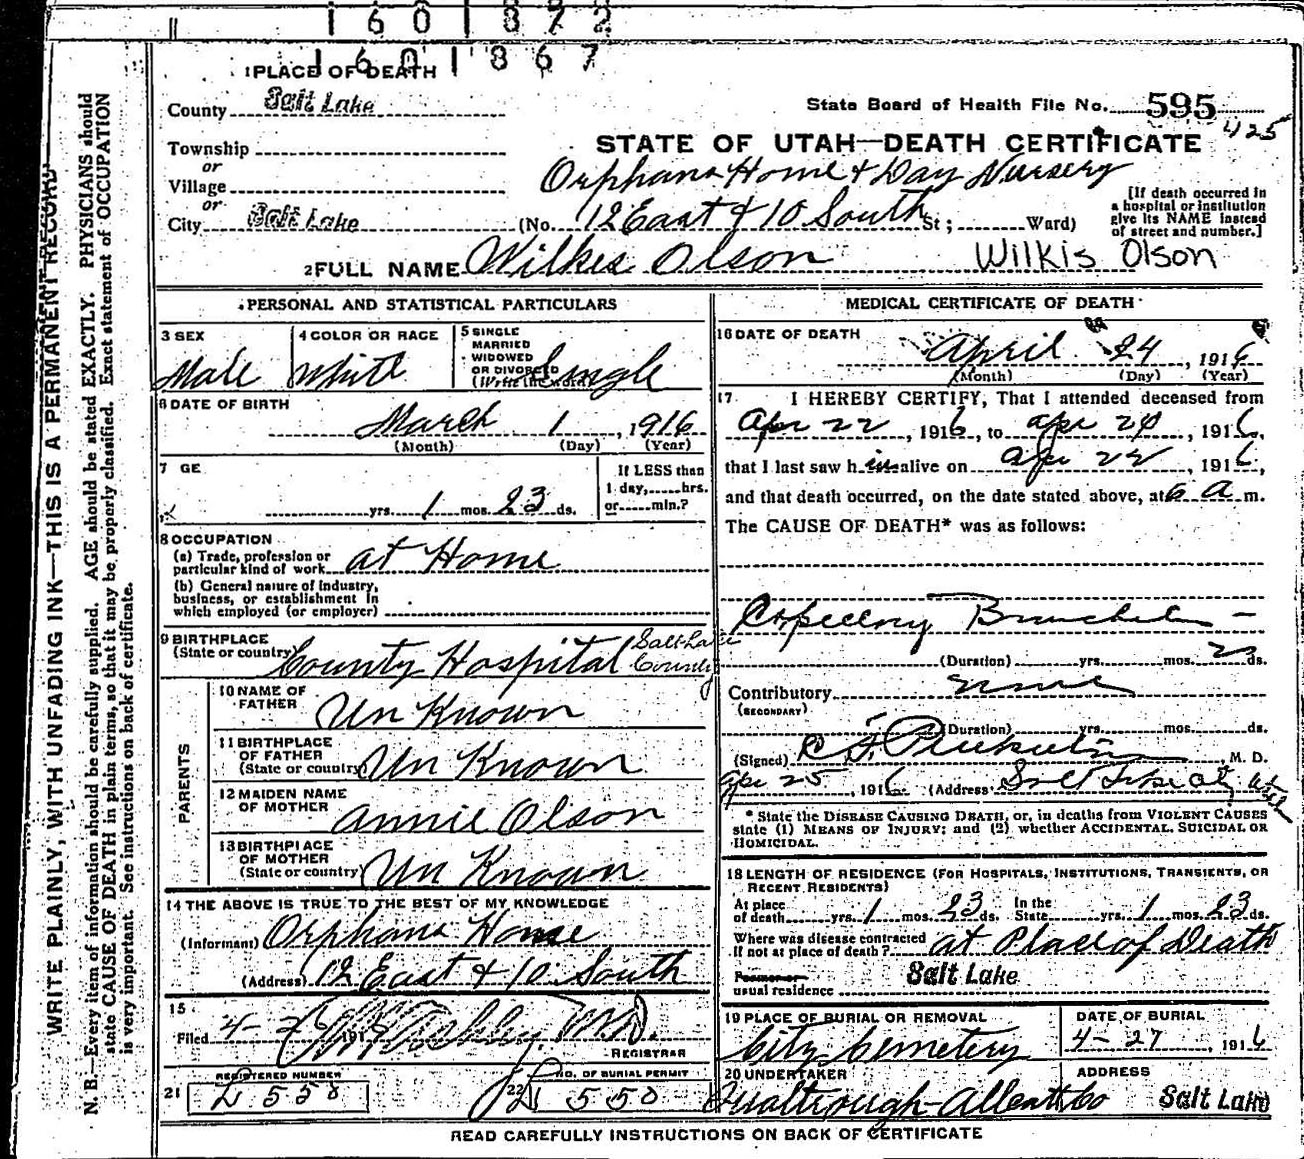 160 1872
160 1867
1 PLACE OF DEATH
County Salt Lake
State Board of Health File No. 595
425
Township
or
Village
or
City Salt Lake
STATE OF UTAH—DEATH CERTIFICATE
Orphans Home & Day Nursery
(No. 12 East & 10 South St; Ward)
[If death occurred in
a hospital or institution
give its NAME instead
of street and number.]
2 FULL NAME Wilkes Olson Wilkis Olson
PERSONAL AND STATISTICAL PARTICULARS
3 SEX
Male
4 COLOR OR RACE
White
5 SINGLE
MARRIED
WIDOWED
OR DIVORCED
(Write the word)
Single
6 DATE OF BIRTH
March 1, 1916
(Month) (Day) (Year)
7 GE
yrs. 1 mos. 23 ds.
If LESS than
1 day, hrs.
or min.?
8 OCCUPATION
(a) Trade, profession or
particular kind of work at Home
(b) General nature of industry,
business, or establishment in
which employed (or employer)
9 BIRTHPLACE
(State or country) County Hospital Salt Lake
County
PARENTS
10 NAME OF
FATHER Un Known
11 BIRTHPLACE
OF FATHER
(State or country) Un Known
12 MAIDEN NAME
OF MOTHER Annie Olson
13 BIRTHPLACE
OF MOTHER
(State or country) Un Known
14 THE ABOVE IS TRUE TO THE BEST OF MY KNOWLEDGE
(Informant) Orphans Home
(Address) 12 East & 10 South
15
Filed 4-2 191 M.D.
REGISTRAR
REGISTERED NUMBER
21 D 550
NO. OF BURIAL PERMIT
22 D 550
MEDICAL CERTIFICATE OF DEATH
16 DATE OF DEATH
April 24, 1916
(Month) (Day) (Year)
17 I HEREBY CERTIFY, That I attended deceased from
Apr 22, 1916, to Apr 24, 1916,
that I last saw him alive on Apr 22, 1916,
and that death occurred, on the date stated above, at 6 a m.
The CAUSE OF DEATH* was as follows:
(Duration) yrs. mos. ds.
Contributory none
(SECONDARY)
(Duration) yrs. mos. ds.
(Signed) M. D.
Apr 25, 1916 (Address) Salt Lake City Utah
* State the DISEASE CAUSING DEATH, or, in deaths from VIOLENT CAUSES
state (1) MEANS OF INJURY; and (2) whether ACCIDENTAL, SUICIDAL OR
HOMICIDAL.
18 LENGTH OF RESIDENCE (FOR HOSPITALS, INSTITUTIONS, TRANSIENTS, OR
RECENT RESIDENTS)
At place In the
of death yrs. 1 mos. 23 ds. State yrs. 1 mos. 23 ds.
Where was disease contracted
if not at place of death? at Place of Death
Former or
usual residence Salt Lake
19 PLACE OF BURIAL OR REMOVAL
City Cemetery
DATE OF BURIAL
4-27, 1916
20 UNDERTAKER
ADDRESS
Salt Lake
READ CAREFULLY INSTRUCTIONS ON BACK OF CERTIFICATE
WRITE PLAINLY, WITH UNFADING INK—THIS IS A PERMANENT RECORD
N. B.—Every item of information should be carefully supplied. AGE should be stated EXACTLY. PHYSICIANS should
state CAUSE OF DEATH in plain terms, so that it may be properly classified. Exact statement of OCCUPATION
is very important. See instructions on back of certificate.